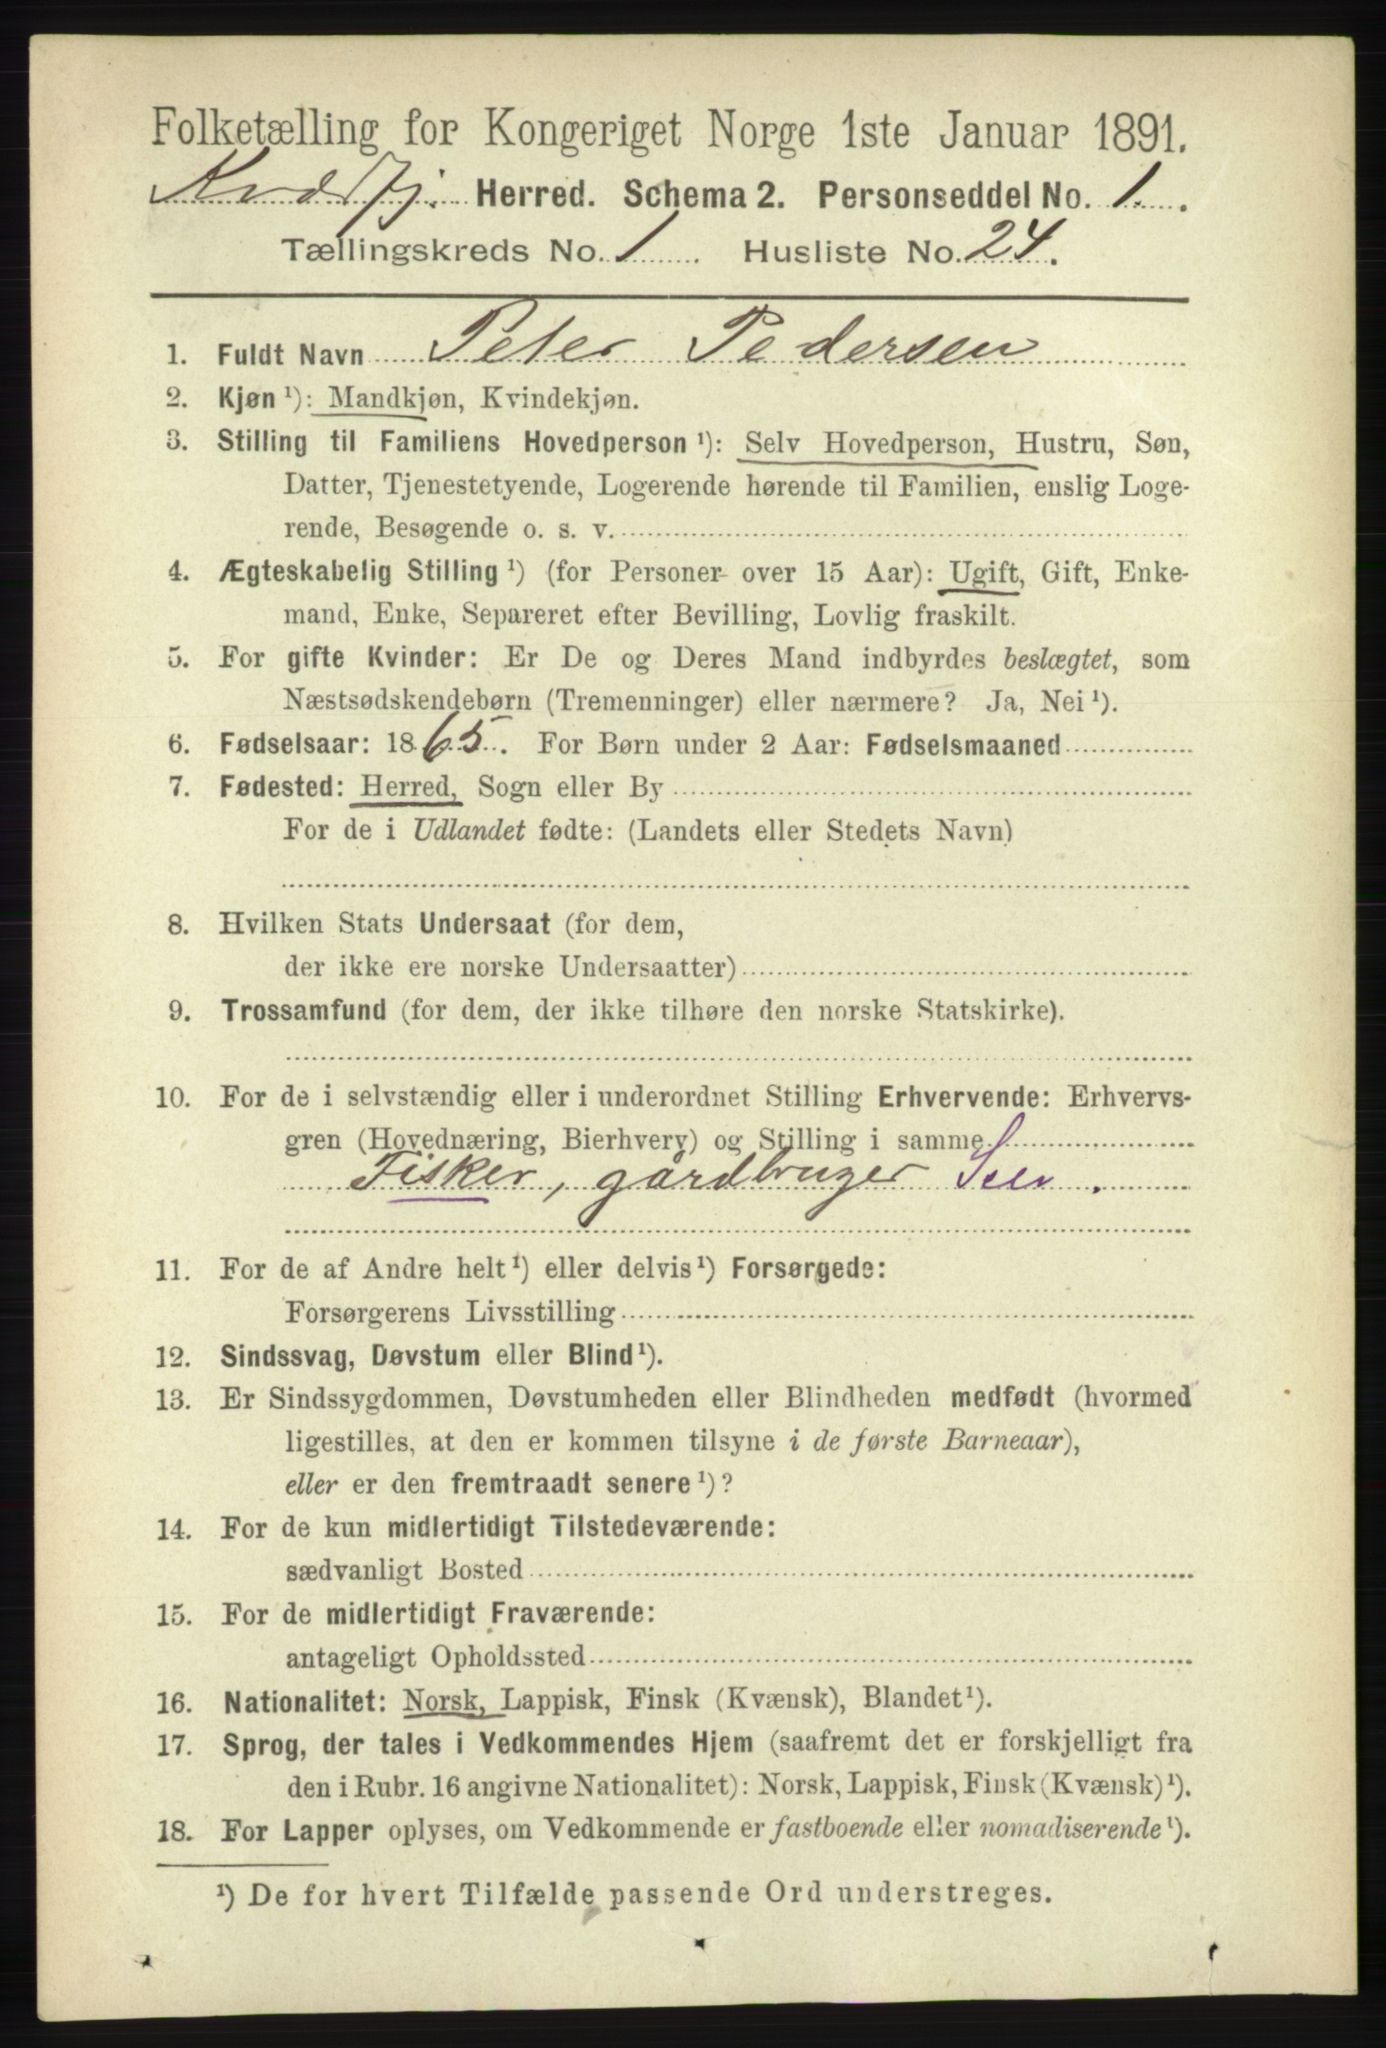 Folketælling for Kongeriget Norge 1ste Januar 1891.
Kvædfj. Herred. Schema 2. Personseddel No. 1.
Tællingskreds No. 1 Husliste No. 24.
1. Fuldt Navn Peter Pedersen
2. Kjøn ¹): Mandkjøn, Kvindekjøn.
3. Stilling til Familiens Hovedperson ¹): Selv Hovedperson, Hustru, Søn,
Datter, Tjenestetyende, Logerende hørende til Familien, enslig Loge-
rende, Besøgende o. s. v.
4. Ægteskabelig Stilling ¹) (for Personer over 15 Aar): Ugift, Gift, Enke-
mand, Enke, Separeret efter Bevilling, Lovlig fraskilt.
5. For gifte Kvinder: Er De og Deres Mand indbyrdes beslægtet, som
Næstsødskendebørn (Tremenninger) eller nærmere? Ja, Nei ¹).
6. Fødselsaar: 1865. For Børn under 2 Aar: Fødselsmaaned
7. Fødested: Herred, Sogn eller By
For de i Udlandet fødte: (Landets eller Stedets Navn)
8. Hvilken Stats Undersaat (for dem,
der ikke ere norske Undersaatter)
9. Trossamfund (for dem, der ikke tilhøre den norske Statskirke).
10. For de i selvstændig eller i underordnet Stilling Erhvervende: Erhvervs-
gren (Hovednæring, Bierhverv) og Stilling i samme
Fisker, gårdbruger Selv.
11. For de af Andre helt ¹) eller delvis ¹) Forsørgede:
Forsørgerens Livsstilling
12. Sindssvag, Døvstum eller Blind ¹).
13. Er Sindssygdommen, Døvstumheden eller Blindheden medfødt (hvormed
ligestilles, at den er kommen tilsyne i de første Barneaar),
eller er den fremtraadt senere ¹)?
14. For de kun midlertidigt Tilstedeværende:
sædvanligt Bosted
15. For de midlertidigt Fraværende:
antageligt Opholdssted
16. Nationalitet: Norsk, Lappisk, Finsk (Kvænsk), Blandet ¹).
17. Sprog, der tales i Vedkommendes Hjem (saafremt det er forskjelligt fra
den i Rubr. 16 angivne Nationalitet): Norsk, Lappisk, Finsk (Kvænsk) ¹).
18. For Lapper oplyses, om Vedkommende er fastboende eller nomadiserende ¹).
¹) De for hvert Tilfælde passende Ord understreges.